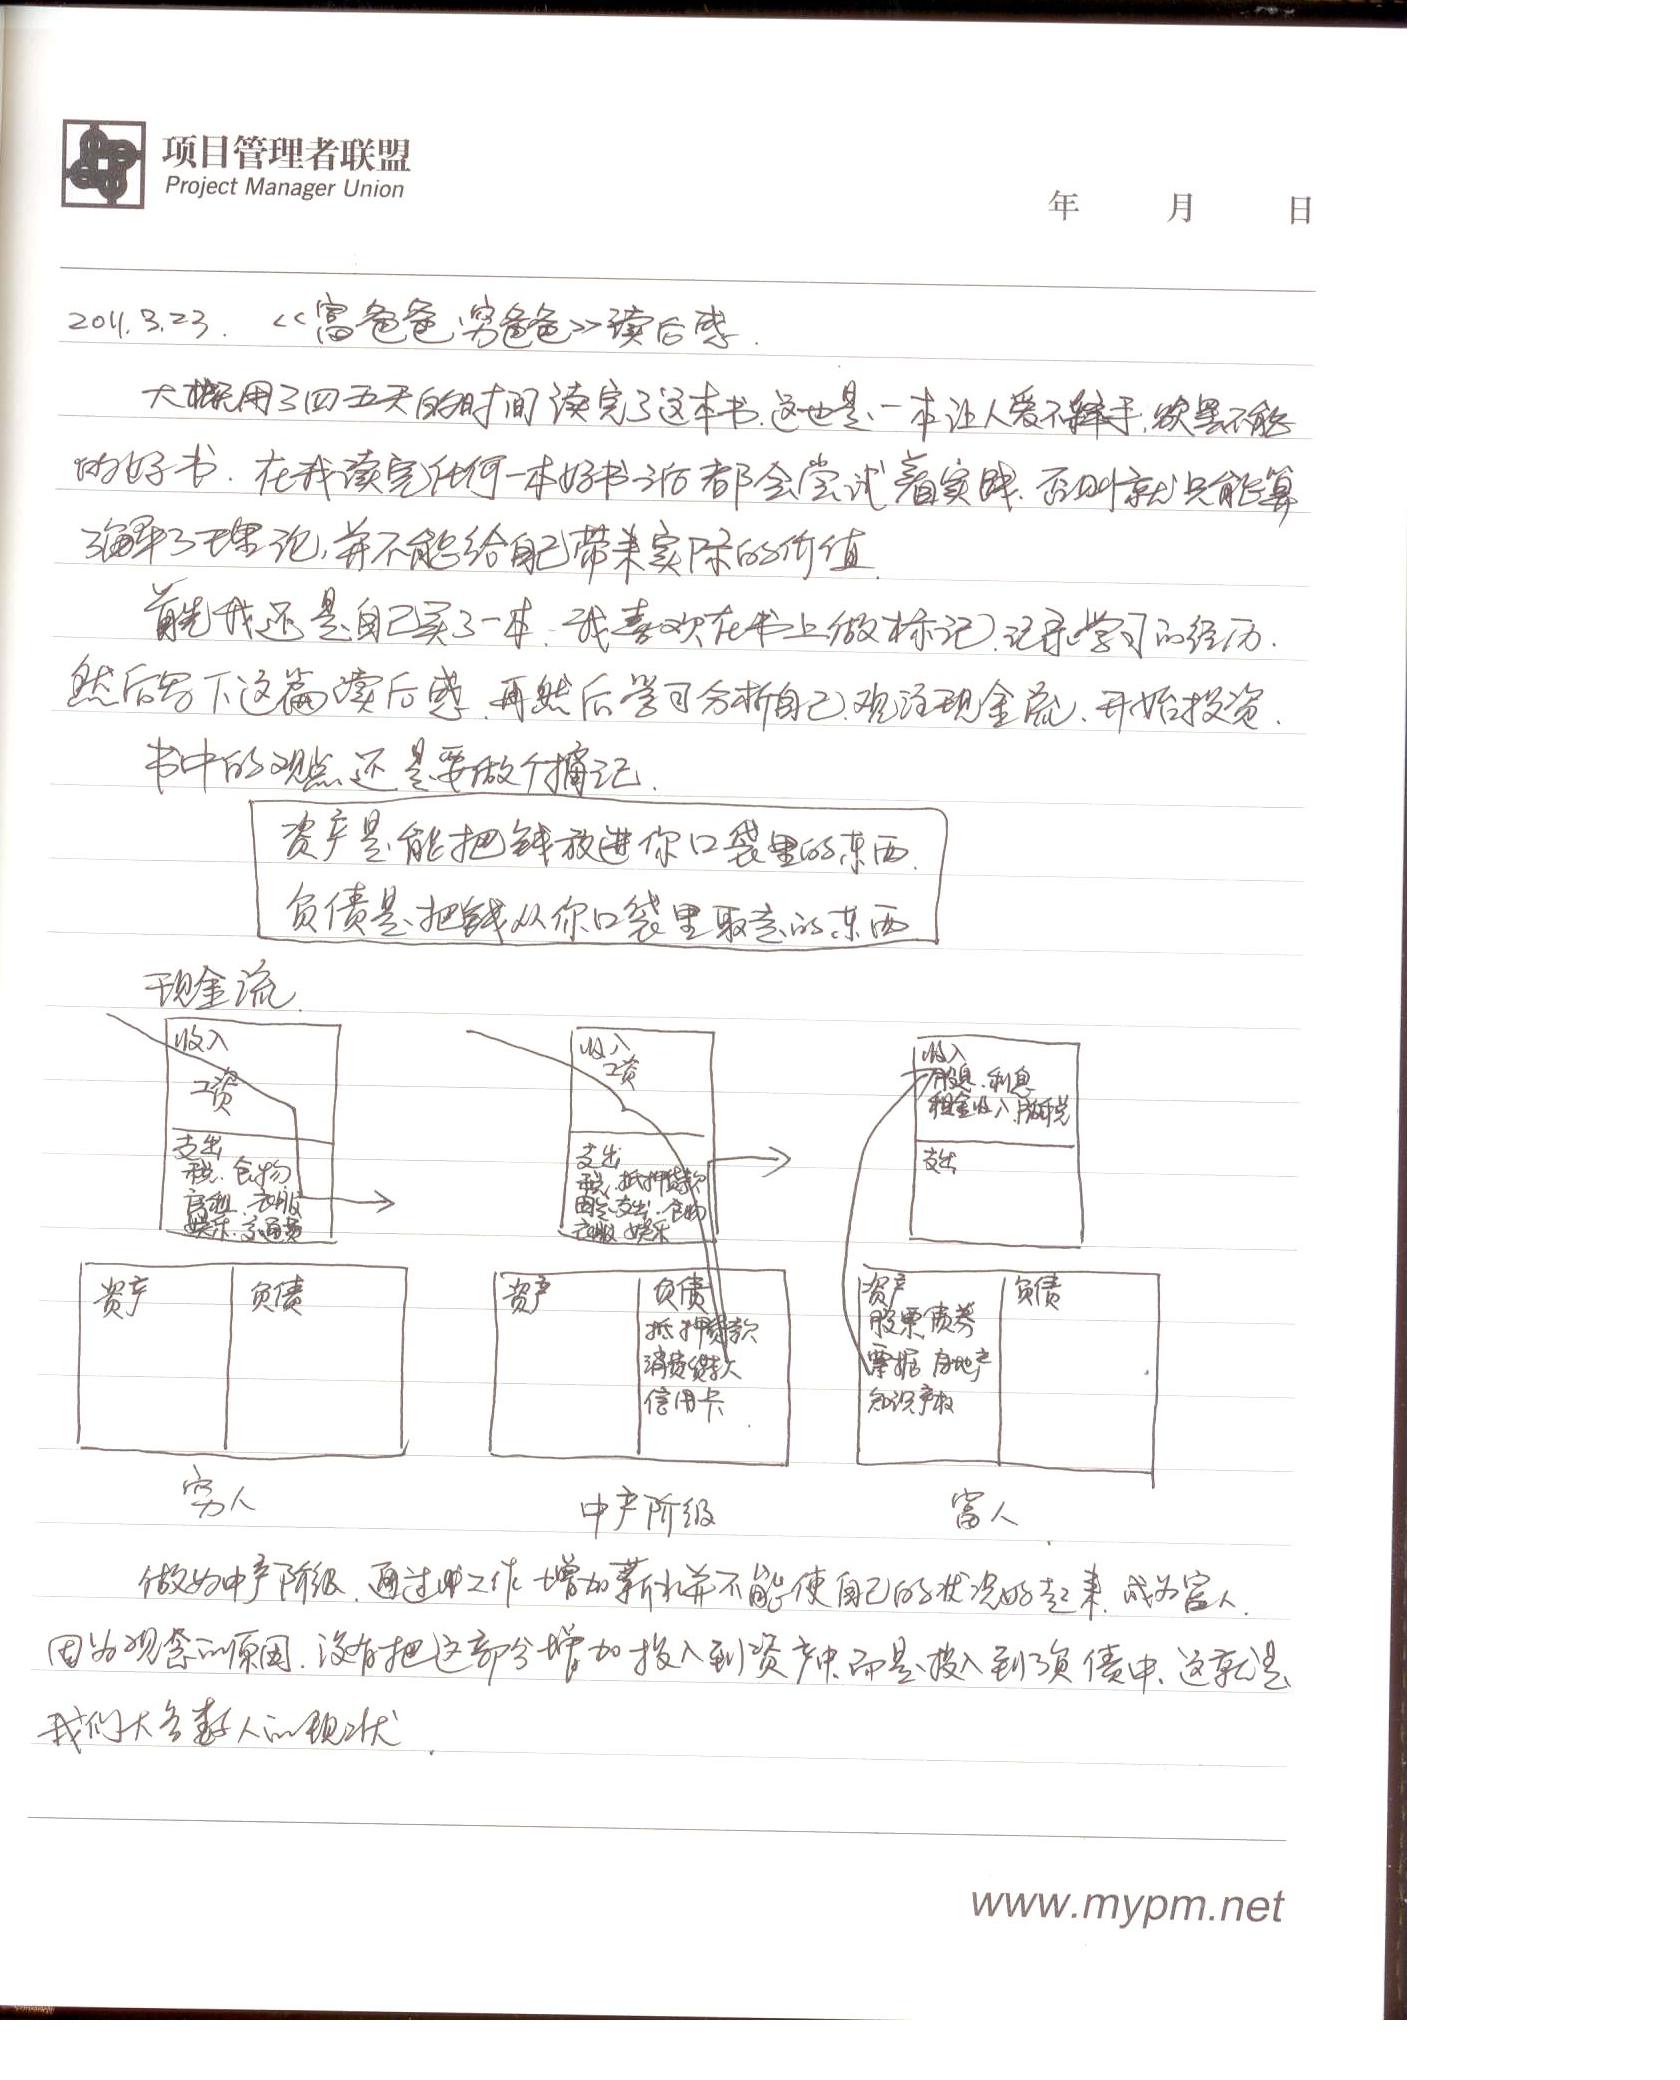 项目管理者联盟
Project Manager Union
年 月 日
2011.3.23. <<富爸爸,穷爸爸>>读后感.
大概用了四五天的时间读完了这本书.这也是一本让人爱不释手,欲罢不能
的好书.在我读完任何一本好书之后都会尝试着实践.否则就只能算
了解了理论,并不能给自己带来实际的价值.
首先我还是自己买了一本.我喜欢在书上做标记,记录学习的经历.
然后写下这篇读后感.再然后学习分析自己.关注现金流.开始投资.
书中的观点还是要做个摘记.
资产是能把钱放进你口袋里的东西.
负债是把钱从你口袋里取走的东西
现金流.
收入
工资
支出
税.食物
房租.衣服
娱乐.交通费
资产 负债
穷人
收入
工资
支出
税.抵押贷款
固定支出.食物
衣服 娱乐
资产 负债
抵押贷款
消费贷款
信用卡
中产阶级
收入
股息.利息
租金收入.版税
支出
资产 负债
股票债券
票据 房地产
知识产权
富人
做为中产阶级.通过工作增加薪水并不能使自己的状况好起来.成为富人.
因为观念的原因.没有把这部分增加投入到资产中.而是投入到了负债中.这就是
我们大多数人的现状.
www.mypm.net